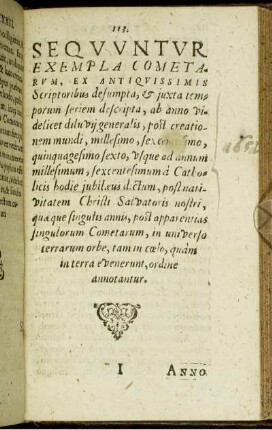 113.
SEQVVNTVR
EXEMPLA COMETA-
RVM, EX ANTIQVISSIMIS
Scriptoribus desumpta, & juxta tem-
porum seriem descripta, ab anno vi-
delicet diluvij generalis, post creatio-
nem mundi, millesimo, sexcentesimo,
quinquagesimo sexto, vsque ad annum
millesimum, sexcentesimum à Catho-
licis hodie jubilæus dictum, post nati-
vitatem Christi Salvatoris nostri,
quæque singulis annis, post apparentias
singulorum Cometarum, in universo
terrarum orbe, tam in cœlo, quàm
in terra evenerunt, ordine
annotantur.
I ANNO